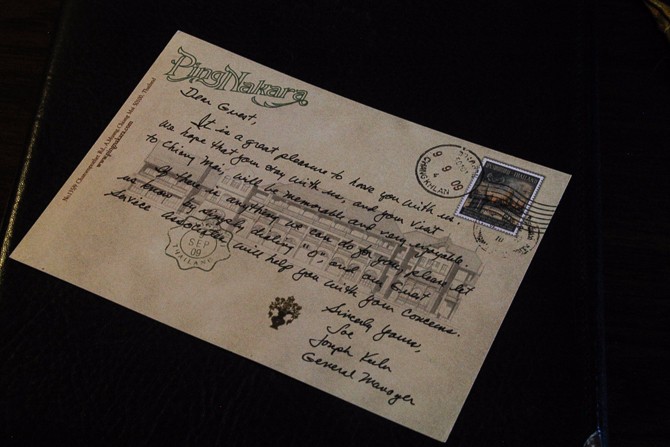 PingNakara
Dear Guest,
It is a great pleasure to have you with us.
We hope that your stay with us, and your visit
to Chiang Mai, will be memorable and very enjoyable.
If there is anything we can do for you, please let
us know by simply dialing "0", and our Guest
Service Associates will help you with your concerns.
Sincerely Yours,
Joe
Joseph
General Manager
www.pingnakara.com
CHANG KHLAN
9 9 09
SEP
09
THAILAND